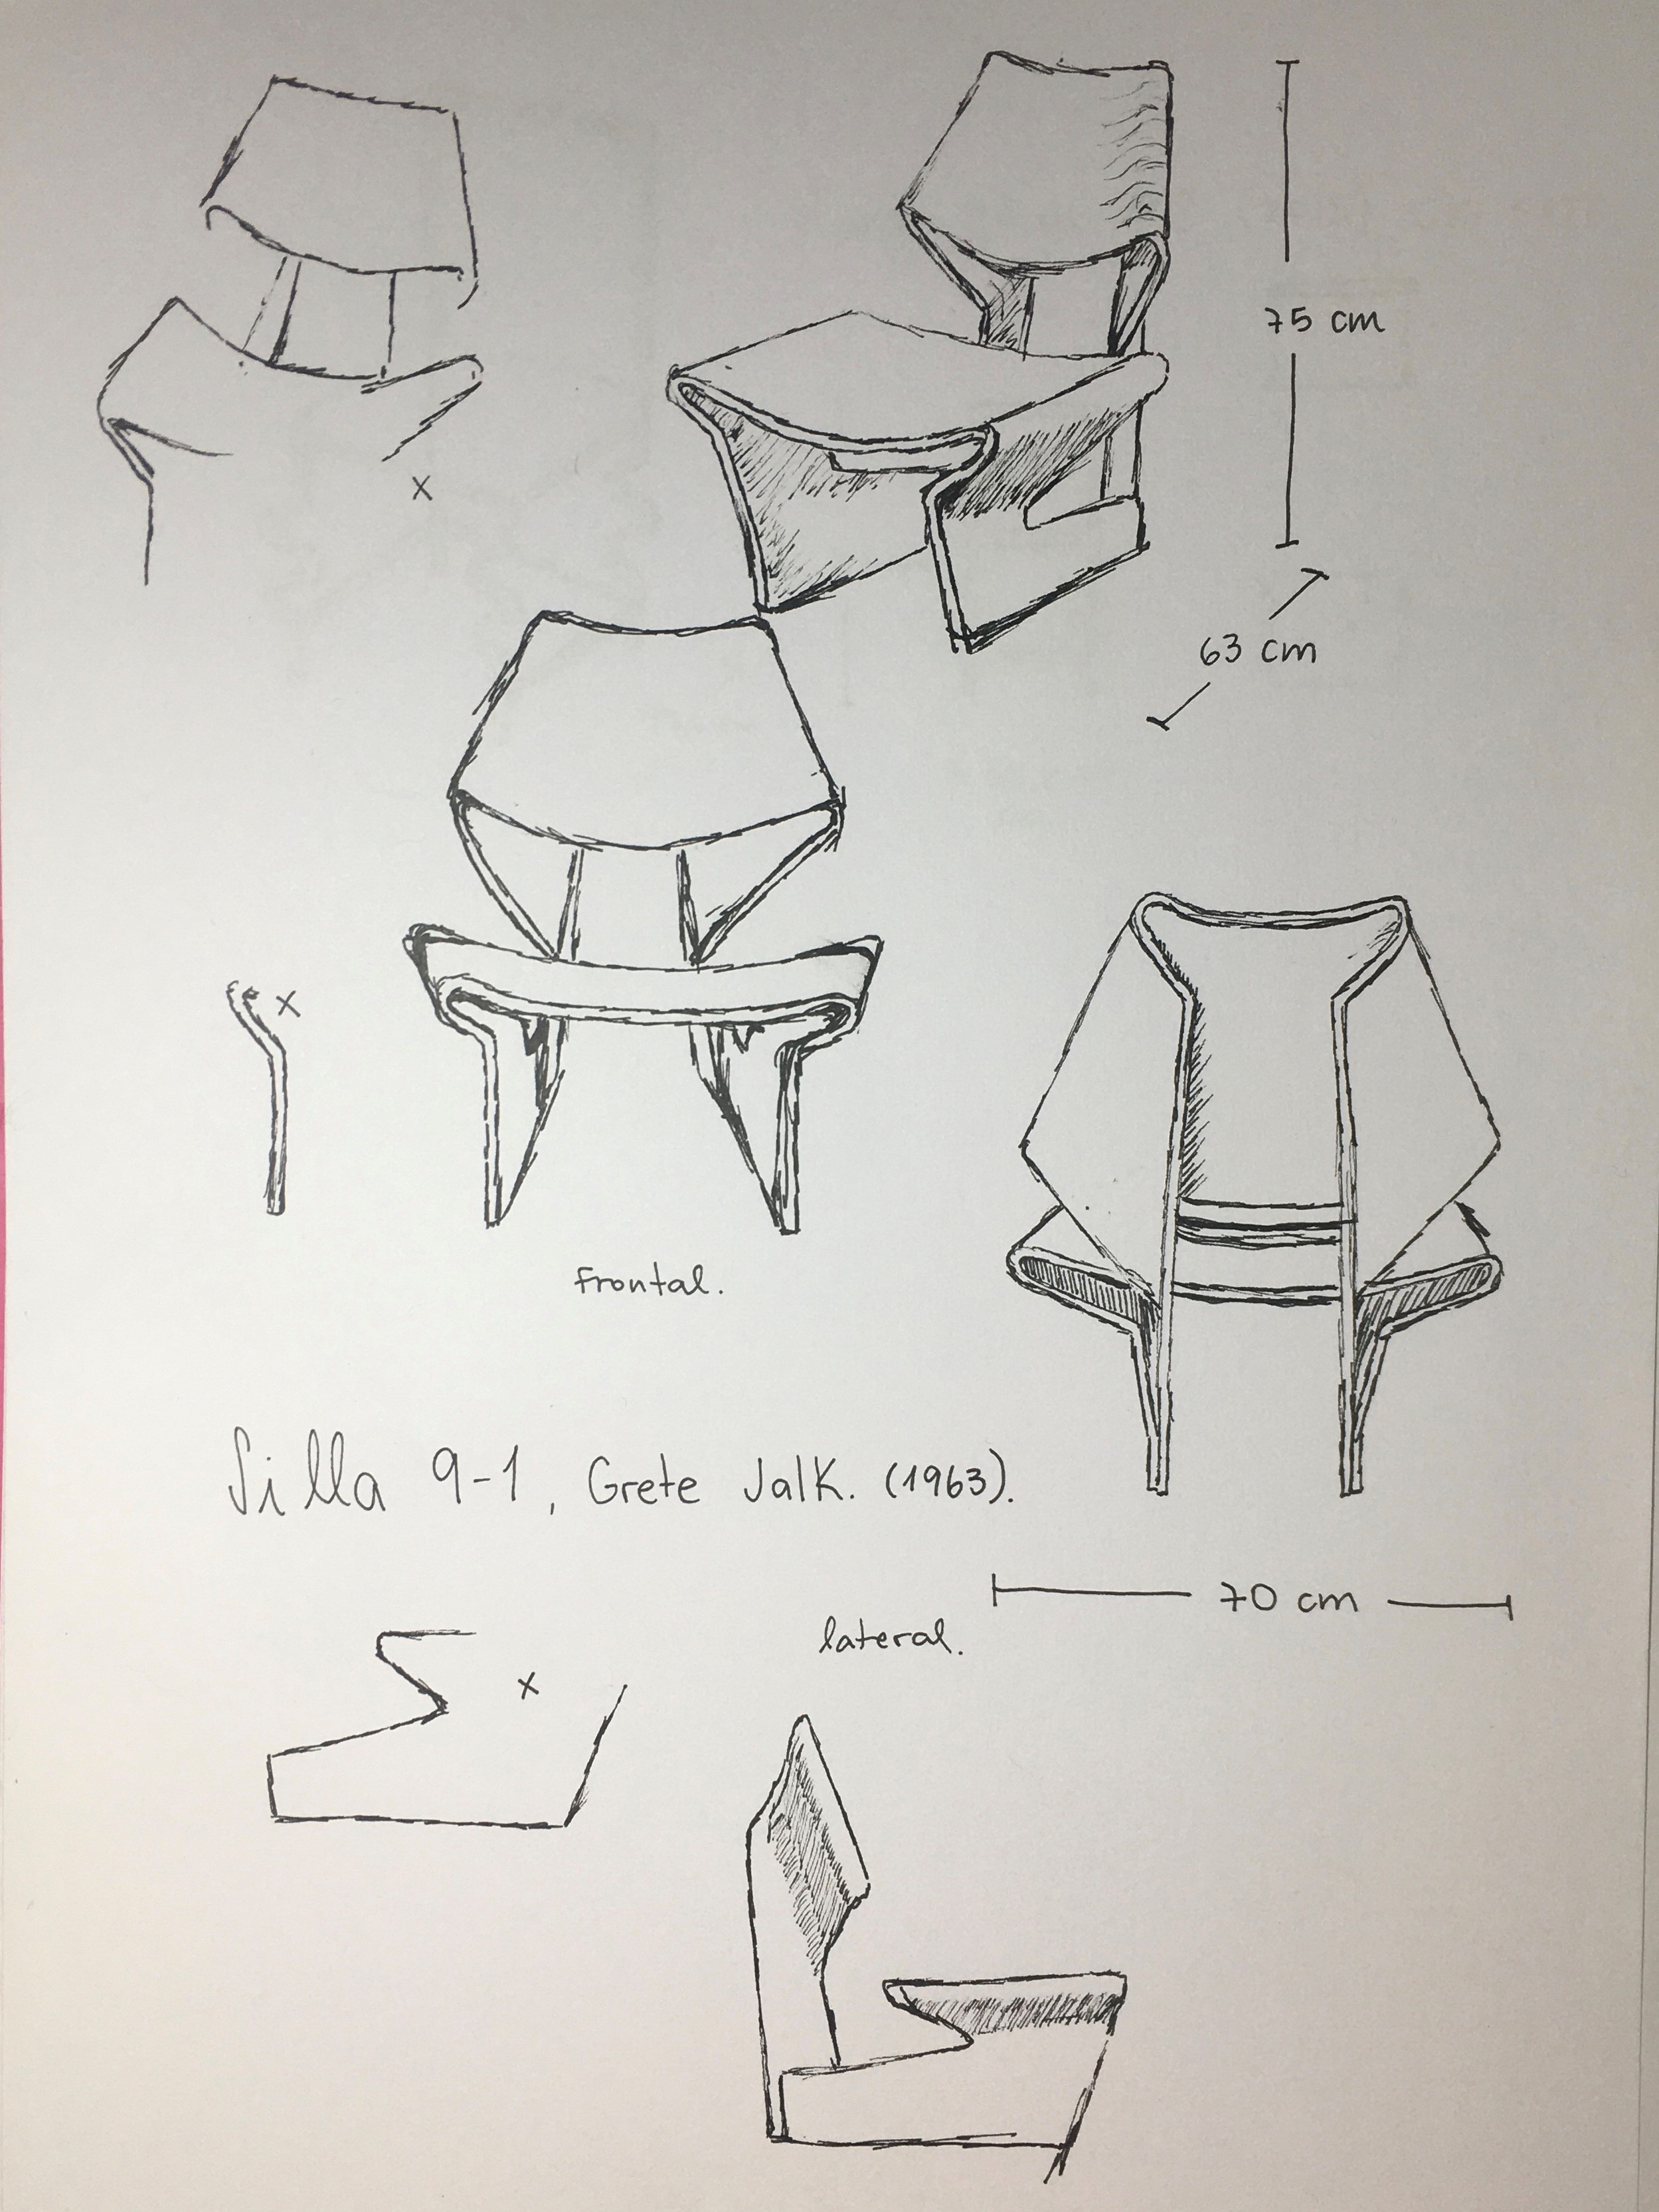 75 cm
63 cm
x
x
Frontal.
Silla 9-1, Grete Jalk. (1963).
70 cm
lateral.
x